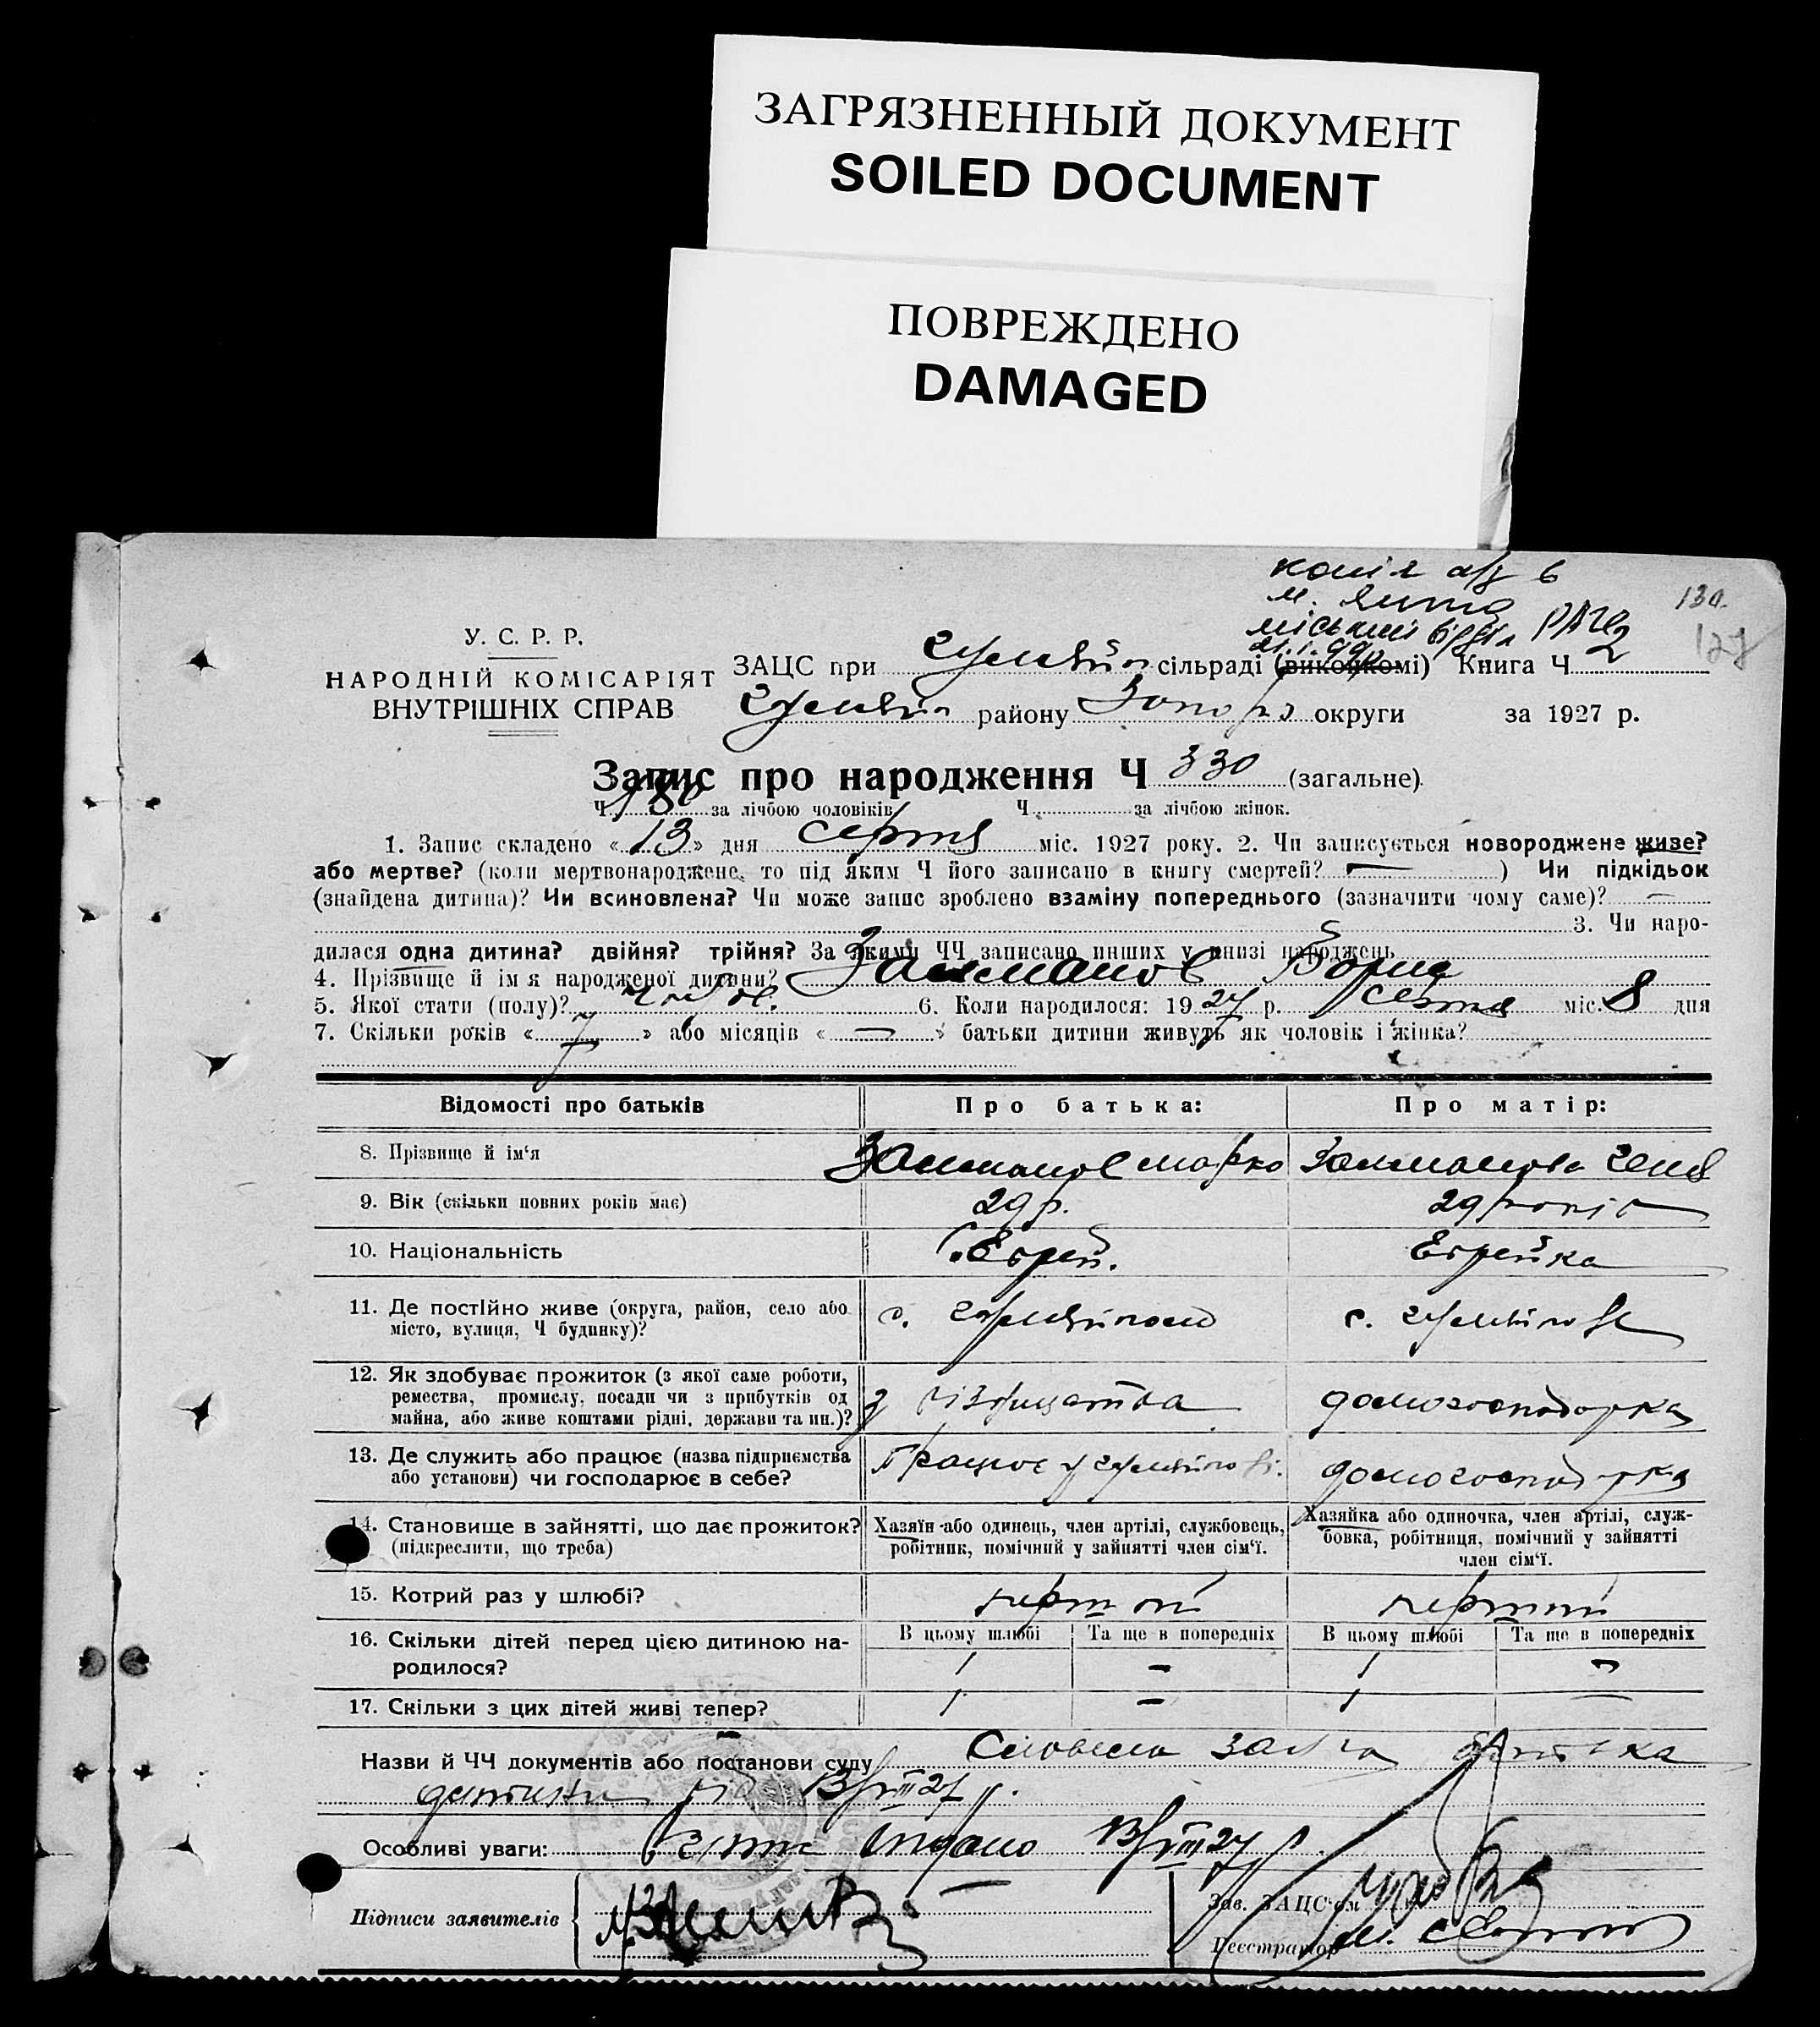 ЗАГРЯЗНЕННЫЙ ДОКУМЕНТ
SOILED DOCUMENT
ПОВРЕЖДЕНО
DAMAGED
копія а/з в
м. Ялта
міський відділ РАГС
130.
У. С. Р. Р.
НАРОДНІЙ КОМІСАРІЯТ
ВНУТРІШНІХ СПРАВ
ЗАЦС при сільраді (викочкомі) Книга Ч 2
району округи за 1927 р.
Запис про народження Ч 330 (загальне).
Ч 180 за лічбою чоловіків Ч за лічбою жінок.
1. Запис складено « 13 » дня серпня міс. 1927 року. 2. Чи записується новороджене живе?
або мертве? (коли мертвонароджене, то під яким Ч його записано в книгу смертей? — ) Чи підкідьок
(знайдена дитина)? Чи всиновлена? Чи може запис зроблено взаміну попереднього (зазначити чому саме)? —
3. Чи наро-
дилася одна дитина? двійня? трійня? За якими ЧЧ записано инших у книзі народжень
4. Прізвище й ім я народженої дитини? Залманов Борис
5. Якої стати (полу)? 6. Коли народилося: 19 27 р. серпня міс. 8 дня
7. Скільки років « 7 » або місяців « — » батьки дитини живуть як чоловік і жінка?
Відомості про батьків
Про батька:
Про матір:
8. Прізвище й ім'я
Залманов Марко
Залманова Геня
9. Вік (скільки повних років має)
29 р.
29 років
10. Національність
Еврей.
Еврейка
11. Де постійно живе (округа, район, село або
місто, вулиця, Ч будинку)?
12. Як здобуває прожиток (з якої саме роботи,
ремества, промислу, посади чи з прибутків од
майна, або живе коштами рідні, держави та ин.)?
з різництва
домогосподарка
13. Де служить або працює (назва підприємства
або установи) чи господарює в себе?
Працює у
домогосподарка
14. Становище в зайнятті, що дає прожиток?
(підкреслити, що треба)
Хазяїн або одинець, член артілі, службовець,
робітник, помічний у зайнятті член сім'ї.
Хазяйка або одиночка, член артілі, служ-
бовка, робітниця, помічний у зайнятті
член сім'ї.
15. Котрий раз у шлюбі?
перший
перший
16. Скільки дітей перед цією дитиною на-
родилося?
В цьому шлюбі
Та ще в попередніх
В цьому шлюбі
Та ще в попередніх
1 — 1 —
17. Скільки з цих дітей живі тепер?
1 — 1 —
Назви й ЧЧ документів або постанови суду Словесна заява батька
дитини від 13/VIII 27 р.
Особливі уваги: видано 13/VIII 27 р.
Підписи заявителів
Зав. ЗАЦС'ом
Реєстратор